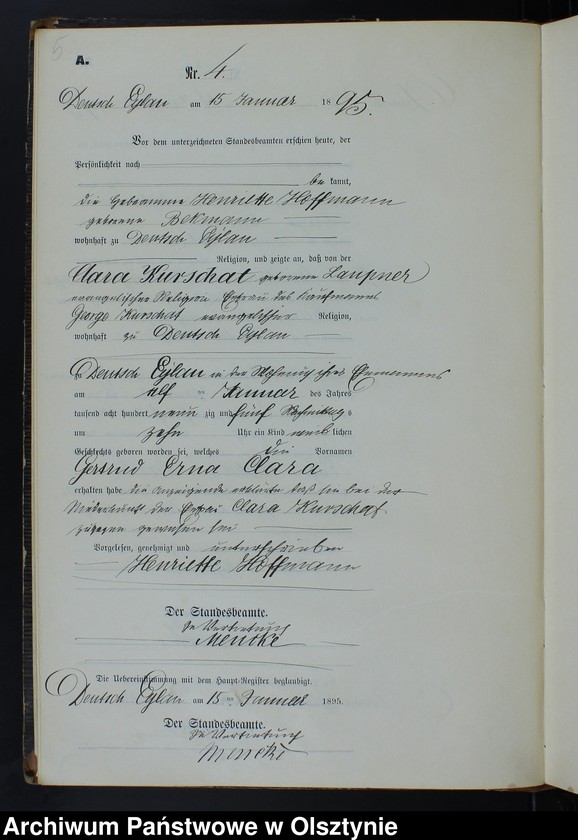 5
A.
Nr. 4.
Deutsch Eylau am 15 Januar 1895.
Vor dem unterzeichneten Standesbeamten erschien heute, der
Persönlichkeit nach
be kannt,
die Hebeamme Henriette Hoffmann
geborene Bekmann
wohnhaft zu Deutsch Eylau
Religion, und zeigte an, daß von der
Clara Kurschat geborene Laupner
evangelischer Religion Ehefrau des Kaufmanns
George Kurschat evangelischer Religion,
wohnhaft zu Deutsch Eylau
zu Deutsch Eylau in der Wohnung ihres Ehemannes
am elf ten Januar des Jahres
tausend acht hundert neun zig und fünf Vormittags
um zehn Uhr ein Kind weib lichen
Geschlechts geboren worden sei, welches die Vornamen
Gertrud Erna Clara
erhalten habe die Anzeigende erklärte daß sie bei der
Niederkunft der Ehefrau Clara Kurschat
zugegen gewesen sei
Vorgelesen, genehmigt und unterschrieben
Henriette Hoffmann
Der Standesbeamte.
In Vertretung
Mencke
Die Uebereinstimmung mit dem Haupt-Register beglaubigt.
Deutsch Eylau am 15 ten Januar 1895.
Der Standesbeamte.
In Vertretung
Mencke
Archiwum Państwowe w Olsztynie